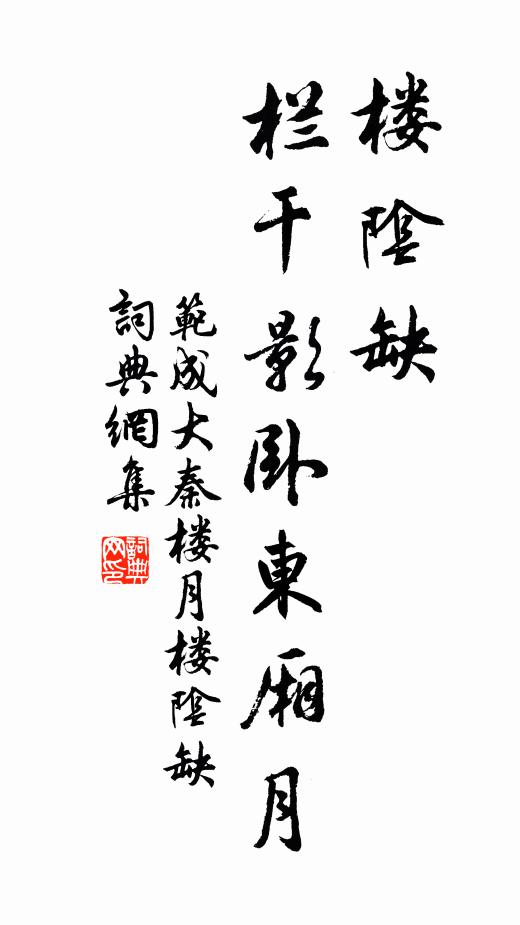 楼陰缺
栏干影卧東厢月
範成大秦楼月楼陰缺
詞典網集
詞典網印